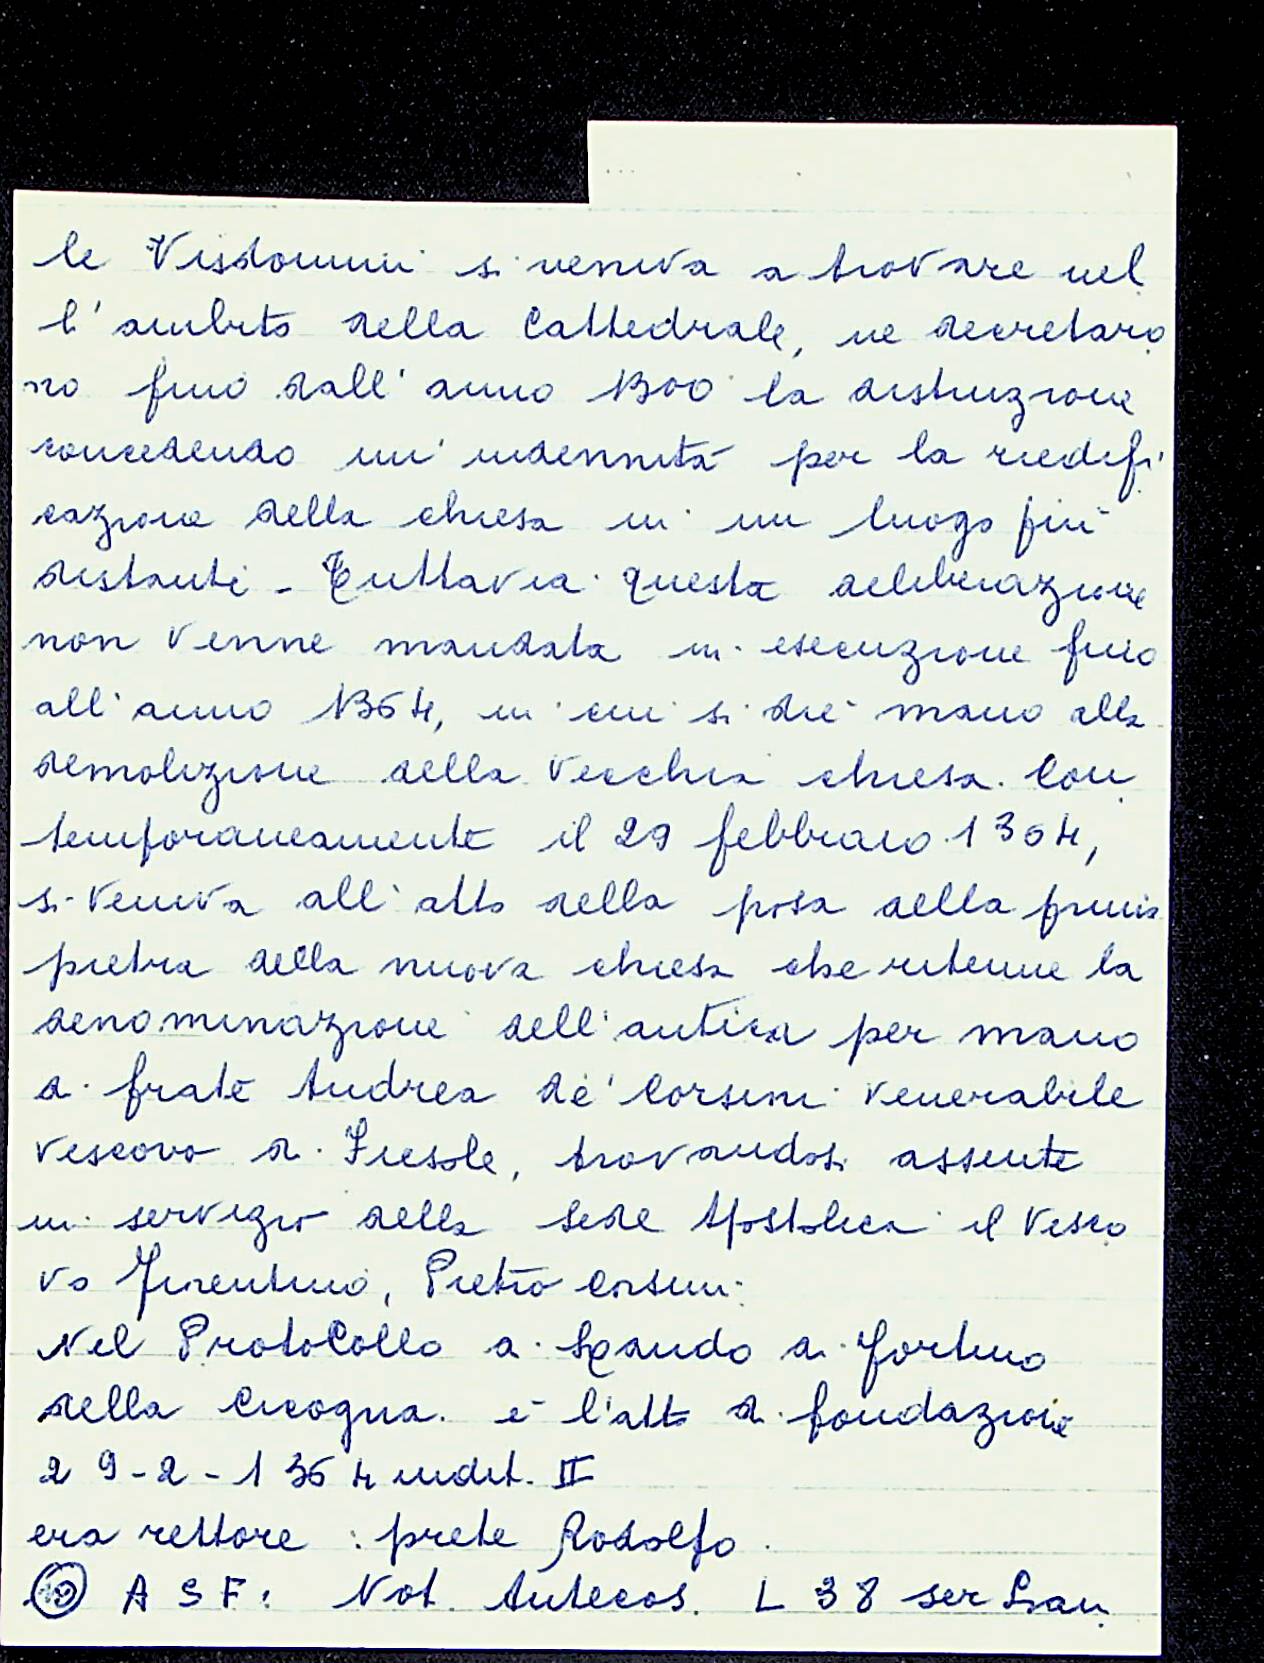 le Visdomini si veniva a trovare nel
l'ambito della Cattedrale, ne decretaro
no fino dall'anno 1300 la distruzione
concedendo un'indennità per la riedifi
cazione della chiesa in un luogo più
distante - Tuttavia questa deliberazione
non venne mandata in esecuzione fino
all'anno 1364, in cui si diè mano alla
demolizione della vecchia chiesa. Con
temporaneamente il 29 febbraio 1364,
si veniva all'atto della posa della prima
pietra della nuova chiesa che ritenne la
denominazione dell'antica per mano
di frate Andrea de' Corsini venerabile
vescovo di Fiesole, trovandosi assente
in servizio della Sede Apostolica il Vesco
vo Fiorentino, Pietro Corsini.
Nel Protocollo di di
della Cicogna. è l'atto di fondazione
29-2-1364 indit. II
era rettore : prete Rodolfo
A S F: Not. Antecos. L 38 ser